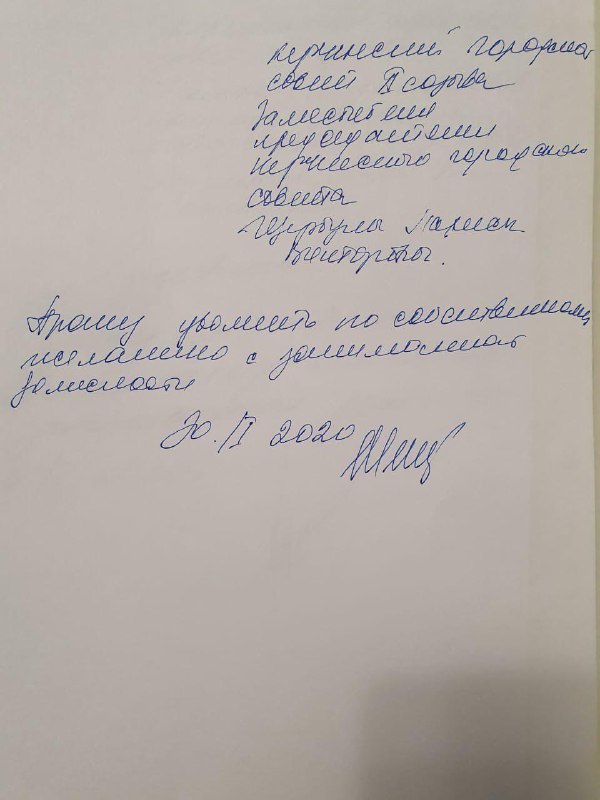 Керченский городской
совет II созыва
Заместителя
председателя
Керченского городского
совета
Щербулы Ларисы
Викторовны.
Прошу уволить по собственному
желанию с занимаемой
должности
20.II 2020